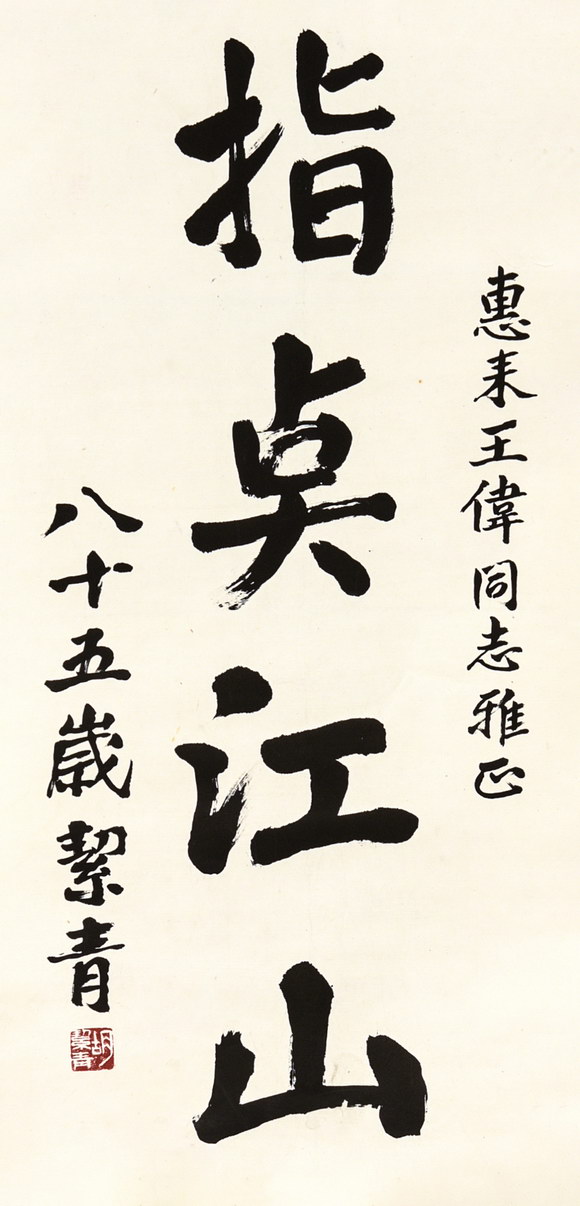 惠来王偉同志雅正
指奌江山
八十五嵗絜青
胡絜青